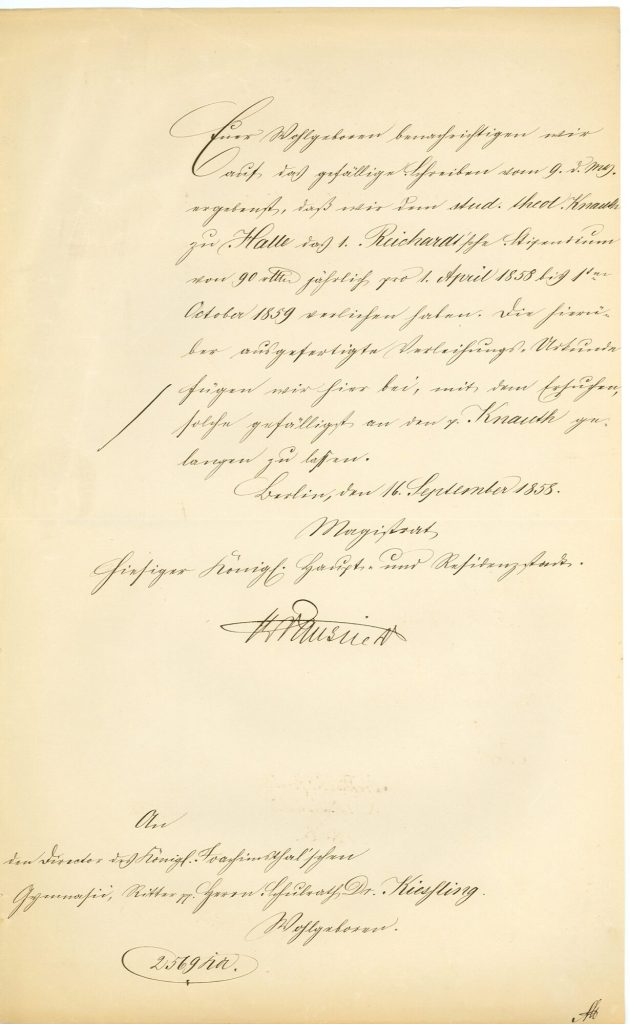 Euer Wohlgeboren benachrichtigen wir
auf das gefällige Schreiben vom 9. d. Mts.
ergebenst, daß wir dem stud. theol. Knauth
zu Halle das 1. Reichardt'sche Stipendium
von 90 rthlr. jährlich pro 1. April 1858 bis 1ten
October 1859 verliehen haben. Die hierü-
ber ausgefertigte Verleihungs-Urkunde
fügen wir hier bei, mit dem Ersuchen,
solche gefälligst an den p. Knauth ge-
langen zu lassen.
Berlin, den 16. September 1858.
Magistrat
hiesiger Königl. Haupt- und Residenzstadt.
Krausnick
An
den Director des Königl. Joachimsthal'schen
Gymnasii, Ritter pp. Herrn Schulrath Dr. Kiessling.
Wohlgeboren.